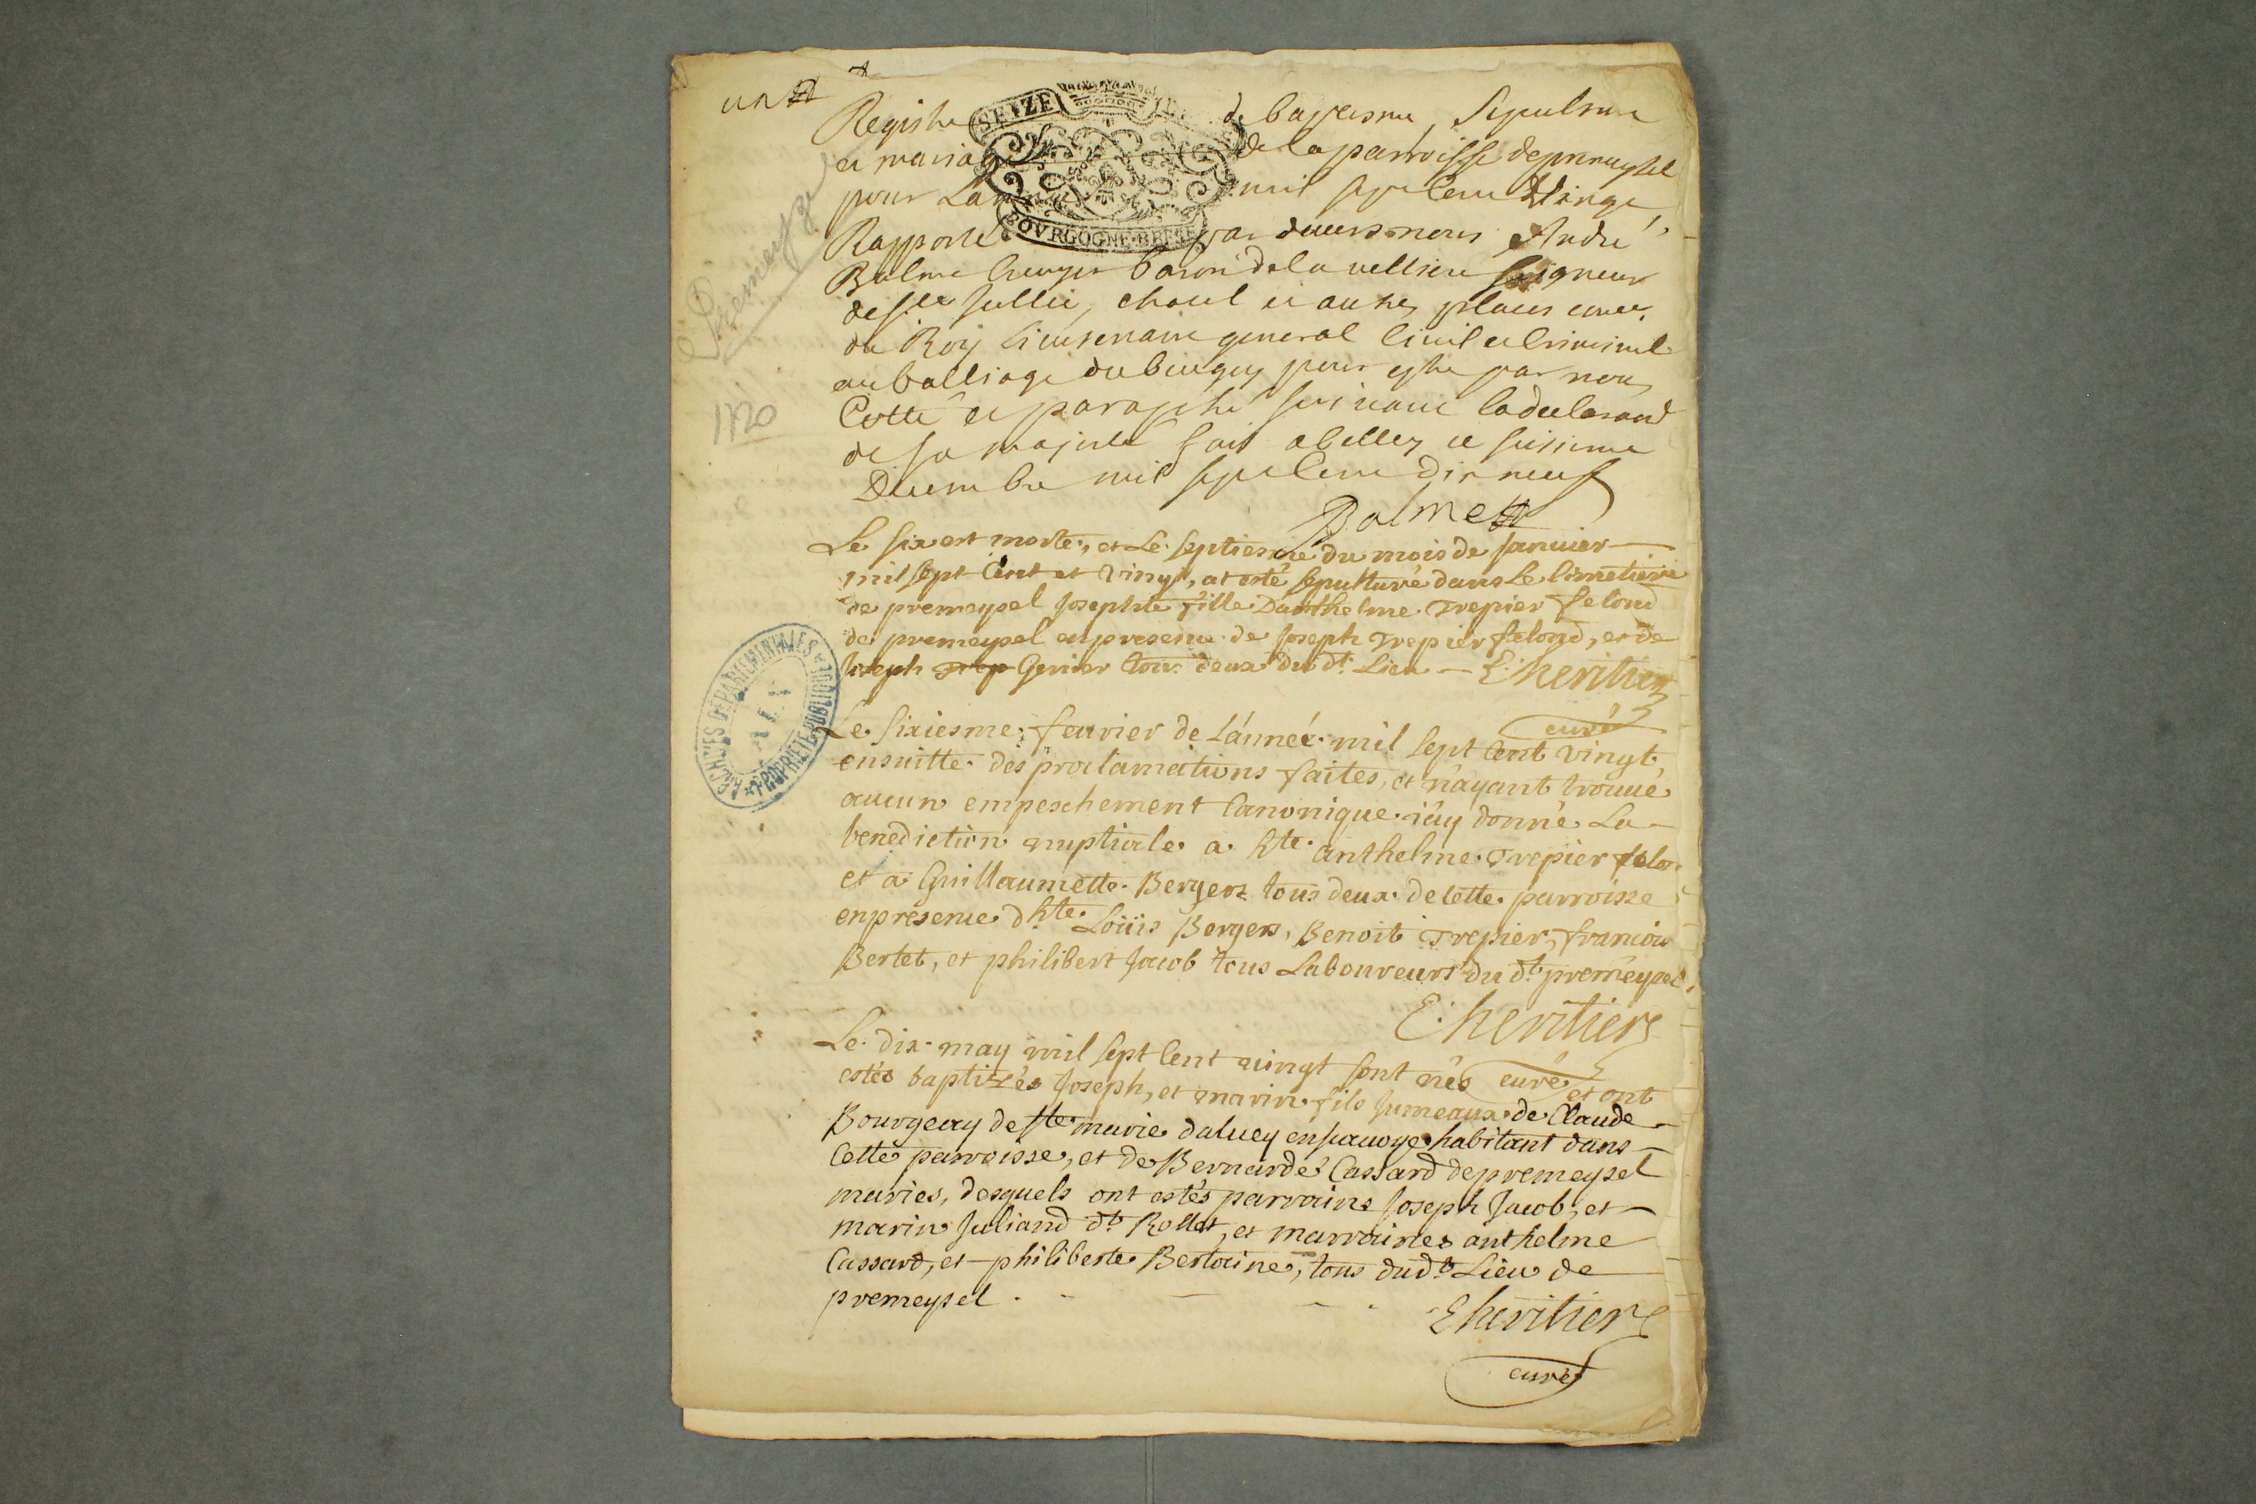 un
Registre de baptesme, Sepulture
et mariage de la parroisse de premeysel
pour L'année mil sept cent vingt,
Rapporté par devers nous André
Balme baron de la velliere Seigneur
de ste Jullie, chatel et autres places
du Roy Lieutenant general Civil et Criminel
au balliage du bugey pour estre par nous
Cotté et paraphé suivant la declaraond
de sa majesté fait a belley ce
Decembre mil sept Cent dix neuf
Balme
SEIZE
BOVRGOGNE BRESSE
Premeyzel
1720
ARCHIVES DEPARTEMENTALES
AIN
PROPRIETE PUBLIQUE
Le six est morte, et Le Septiesme du mois de Janvier
mil sept Cent et vingt, at esté sepulturé dans Le Cimetiere
de premeysel Josephte fille Danthelme Trepier felond
de premeysel en presence de Joseph Trepier felond, et de
Joseph Trep Gerier tous deux du dt. Lieu E: heritier
curé
Le Sixiesme fevrier de L'année mil sept Cent vingt
ensuitte des proclamations faites, et n'ayant trouvé
aucun empeschement Canonique j'ay donné La
benediction nuptiale a hte. anthelme Trepier felon
et a Guillaumette Bergers tous deux de Cette parroisse
en presence d'hte. Loüis Bergers, Benoit Trepier, francois
Bertet, et philibert Jacob tous Laboureurs du dt. premeysel,
E: heritiers
curé
Le dix may mil sept Cent vingt sont nés et ont
estés baptizés Joseph, et marin fils Jumeaux de Claude
Bourgeay de ste marie dalvey en savoye habitant dans
Cette parroisse, et de Bernarde Cassard de premeysel
maries, desquels ont estés parrains Joseph Jacob, et
marin Juliand dt. Rollet, et marraines anthelme
Cassard, et philiberte Bertaine, tous dud.t Lieu de
premeysel
E heritiers
curé